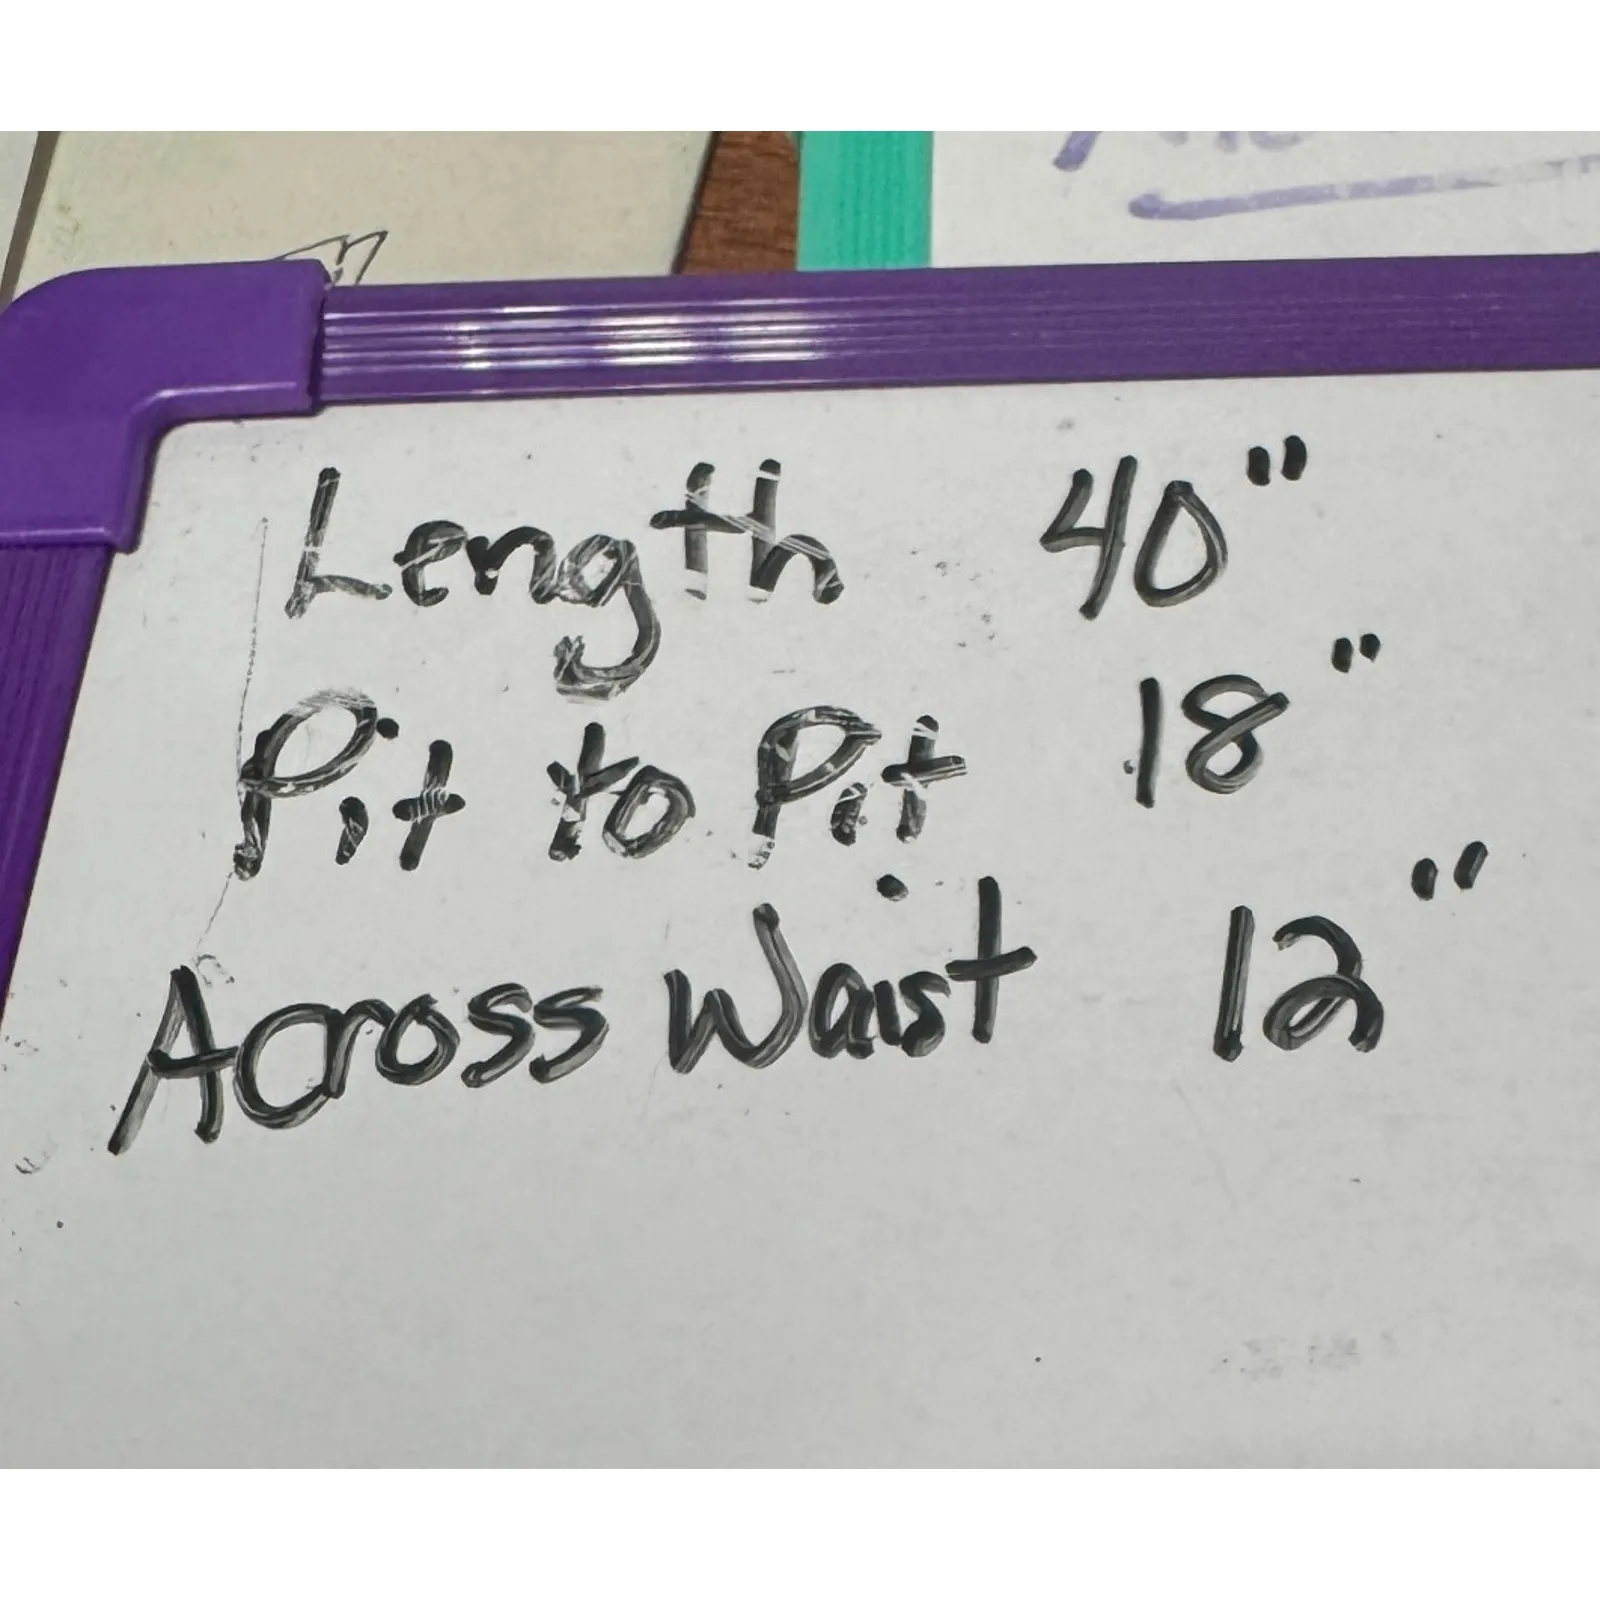 Length 40"
Pit to Pit 18"
Across Waist 12"